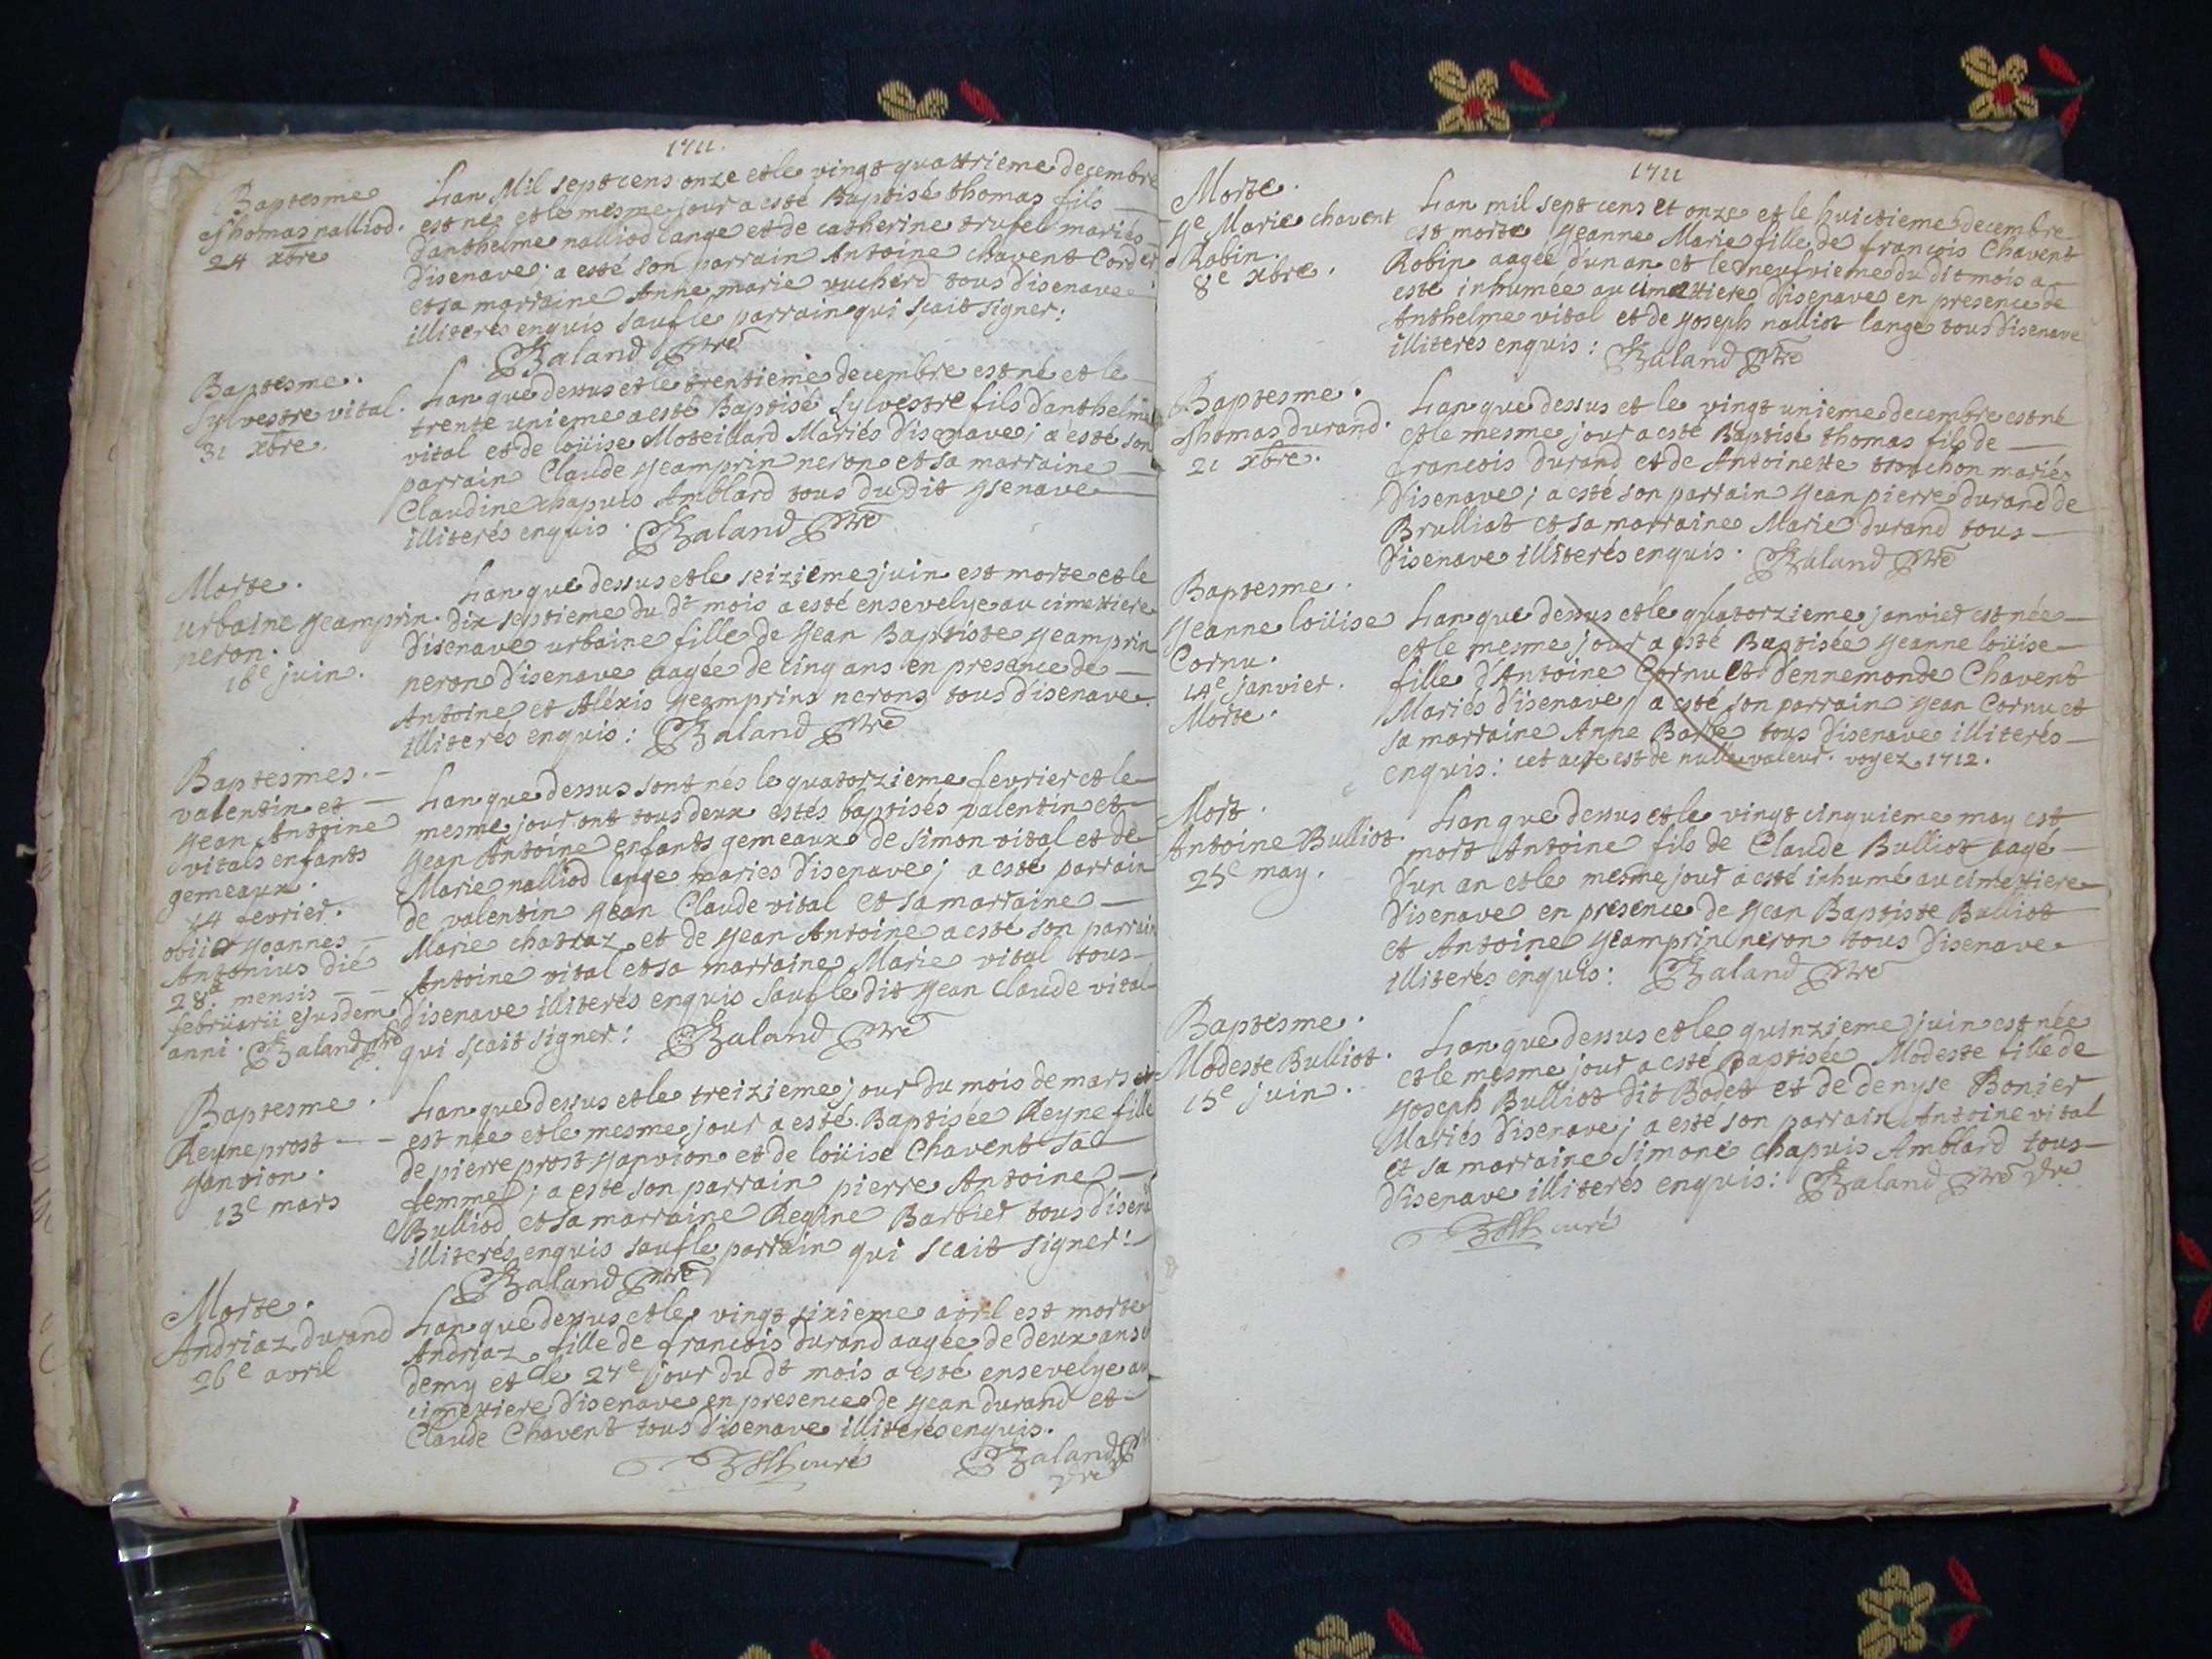 1711.
Baptesme
Thomas nalliod.
24 xbre
Lan Mil sept cens onze et le vingt quattrieme decembre
est né et le mesme jour a esté Baptisé thomas fils
danthelme nalliod lange et de catherine trufel mariés
disenave; a esté son parrain Antoine chavent Cordier
et sa marraine Anne marie vucherd tous disenave
illiterés enquis saufle parrain qui sçait signer:
Baland ptre
Baptesme.
Sylvestre vital.
31 xbre.
Lan que dessus et le trentieme decembre est né et le
trente unieme a esté Baptisé Sylvestre fils danthelme
vital et de loüise Moteillard Mariés disenave; a esté son
parrain Claude geamprin neron et sa marraine
Claudine chapuis Amblard tous du dit ysenave
illiterés enquis. Baland ptre
Morte.
urbaine geamprin
neron.
16e juin.
Lan que dessus et le seizieme juin est morte et le
dix septieme du dt mois a esté ensevelye au cimettiere
disenave urbaine fille de Jean Baptiste geamprin
neron disenave aagée de cinq ans en presence de
Antoine et Aléxis geamprins nerons tous disenave
illiterés enquis: Baland ptre
Baptesmes.
valentin et
Jean Antoine
vitals enfants
gemeaux.
14 fevrier.
obiit Joannes
Antonius die
28a mensis
februarii ejusdem
anni. Baland ptre
Lan que dessus sont nés le quatorzieme fevrier et le
mesme jour ont tous deux estés baptisés valentin et
Jean Antoine enfants gemeaux de simon vital et de
Marie nalliod lange mariés disenave; a esté parrain
de valentin Jean Claude vital et sa marraine
Marie chatraz et de Jean Antoine a esté son parrain
Antoine vital et sa marraine Marie vital tous
disenave illiterés enquis saufle dit Jean Claude vital
qui sçait signer: Baland ptre
Baptesme.
Reyne prost
Janvion.
13e mars
Lan que dessus et le treizieme jour du mois de mars
est née et le mesme jour a esté Baptisée Reyne fille
de pierre prost Janvion et de loüise Chavent sa
femme; a esté son parrain pierre Antoine
Bulliod et sa marraine Regine Barbier tous disena
illiterés enquis saufle parrain qui scait signer:
Baland ptre
Morte.
Andriaz durand
26e avril
Lan que dessus et le vingt sixieme avril est morte
Andriaz fille de francois durand aagée de deux ans
demy et le 27e jour du dt mois a esté ensevelye au
cimettiere disenave en presence de Jean durand et
Claude Chavent tous disenave illiterés enquis.
curé Baland ptre
1711
Morte.
Je Marie chavent
Robin.
8e xbre.
Lan mil sept cens et onze et le huictieme decembre
est morte Jeanne Marie fille de francois Chavent
Robin aagée dun an et le neufvieme du dit mois a
esté inhumée au cimettiere disenave en presence de
Anthelme vital et de Joseph nalliot lange tous disenave
illiterés enquis: Baland ptre
Baptesme.
Thomas durand.
21 xbre.
Lan que dessus et le vingt unieme decembre est né
et le mesme jour a esté Baptisé thomas fils de
francois durand et de Antoinette tronchon mariés
disenave; a esté son parrain Jean pierre durand de
Brulliat et sa marraine Marie durand tous
disenave illiterés enquis. Baland ptre
Baptesme.
Jeanne loüise
Cornu.
14e janvier.
Morte.
Lan que dessus et le quatorzieme janvier est née
et le mesme jour a esté Baptisée Jeanne loüise
fille d'Antoine Cornu et d'ennemonde Chavent
Mariés disenave; a esté son parrain Jean Cornu et
sa marraine Anne Barbe tous disenave illiterés
enquis: cet acte est de nulle valeur. voyez 1712.
Mort.
Antoine Bulliot.
25e may.
Lan que dessus et le vingt cinquieme may est
mort Antoine fils de Claude Bulliot aagé
d'un an et le mesme jour a esté inhumé au cimettiere
disenave en presence de Jean Baptiste Bulliot
et Antoine geamprin neron tous disenave
illiterés enquis: Baland ptre
Baptesme.
Modeste Bulliot.
15e juin.
Lan que dessus et le quinzieme juin est née
et le mesme jour a esté Baptisée Modeste fille de
Joseph Bulliot dit Bodet et de denyse Bonier
Mariés disenave; a esté son parrain Antoine vital
et sa marraine simone chapuis Amblard tous
disenave illiterés enquis: Baland ptre
curé